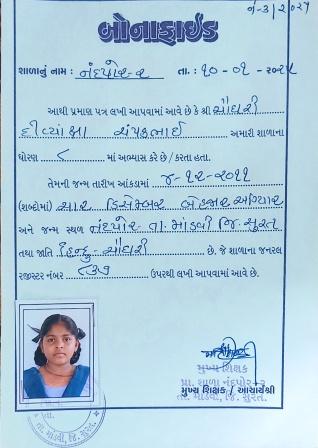 નં-૩/૨૦૨૫
બોનાફાઈડ
શાળાનું નામ : નંદપોર-૨ તા. : ૧૦-૦૧-૨૦૨૫
આથી પ્રમાણ પત્ર લખી આપવામાં આવે છે કે શ્રી ચૌધરી
દિવ્યાક્ષા ચંપકભાઈ અમારી શાળાના
ધોરણ ૮ માં અભ્યાસ કરે છે / કરતા હતા.
તેમની જન્મ તારીખ આંકડામાં ૪-૧૨-૨૦૧૧
(શબ્દોમાં) ચાર ડિસેમ્બર બેહજાર અગિયાર
અને જન્મ સ્થળ નંદપોર તા. માંડવી જિ. સુરત
તથા જાતિ હિન્દુ - ચૌધરી છે. જે શાળાના જનરલ
રજીસ્ટર નંબર ૮૩૭ ઉપરથી લખી આપવામાં આવે છે.
મુખ્ય શિક્ષક
મુખ્ય શિક્ષક / આચાર્યશ્રી
પ્રા. શાળા નંદપોર-૨
તા. માંડવી, જિ. સુરત.
તા. માંડવી, જિ. સુરત.